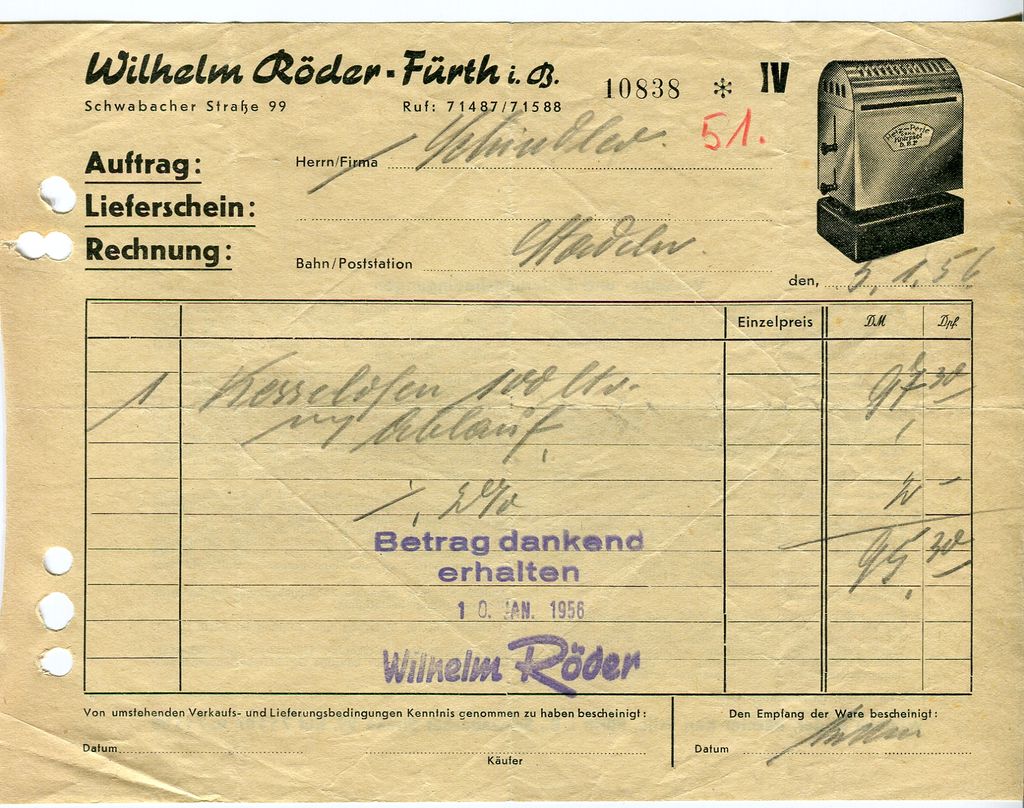 Wilhelm Röder - Fürth i. B.
10838 * IV
Schwabacher Straße 99 Ruf: 71487/71588
51.
Auftrag:
Herrn/Firma Schindler.
Lieferschein:
Rechnung:
Bahn/Poststation Stadeln.
den, 5.1.56
Einzelpreis DM Dpf.
1 Kesselofen 100 Ltr. 97 30
m/ Ablauf
2% 2 –
95 30
Betrag dankend
erhalten
10. JAN. 1956
Wilhelm Röder
Von umstehenden Verkaufs- und Lieferungsbedingungen Kenntnis genommen zu haben bescheinigt:
Datum
Käufer
Den Empfang der Ware bescheinigt:
Datum